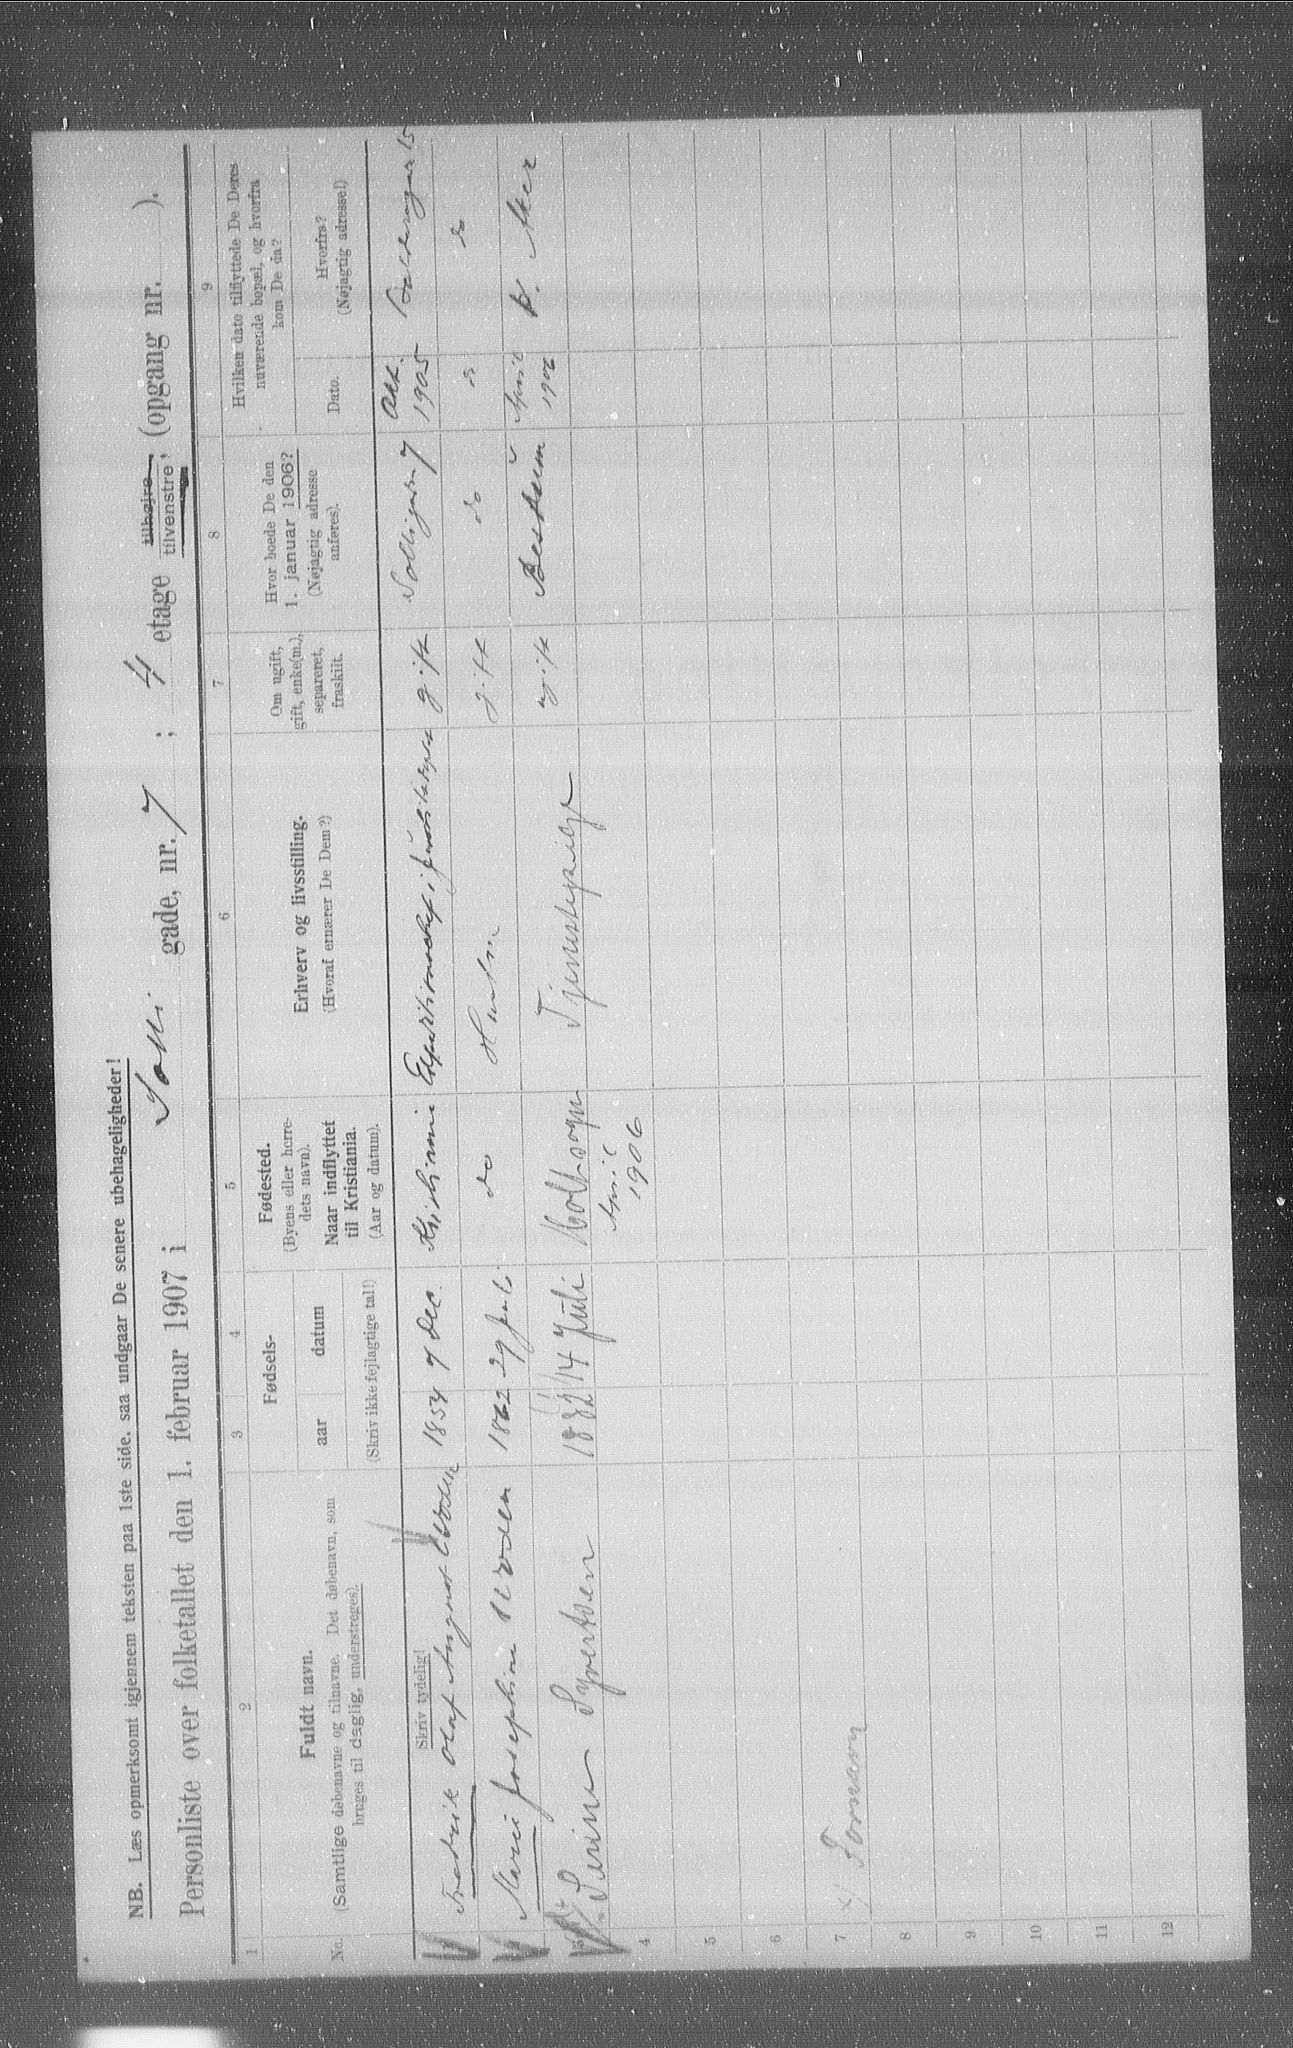 NB. Læs opmerksomt igjennem teksten paa 1ste side, saa undgaar De senere ubehageligheder!
Personliste over folketallet den 1. februar 1907 i Solli gade, nr. 7 ; 4 etage tilhøjre tilvenstre, (opgang nr. ).
1 2 3 4 5 6 7 8 9
No.
Fuldt navn.
(Samtlige døbenavne og tilnavne. Det døbenavn, som
bruges til daglig, understreges).
Fødsels-
aar
datum
(Skriv ikke fejlagtige tal!)
Fødested.
(Byens eller herre-
dets navn).
Naar indflyttet
til Kristiania.
(Aar og datum).
Erhverv og livsstilling.
(Hvoraf ernærer De Dem?)
Om ugift,
gift, enke(m.),
separeret,
fraskilt.
Hvor boede De den
1. januar 1906?
(Nøjagtig adresse
anføres).
Hvilken dato tilflyttede De Deres
nuværende bopæl, og hvorfra
kom De da?
Dato.
Hvorfra?
(Nøjagtig adresse!)
Skriv tydelig!
Fredrik Olaf August 1854 7 Dec. Kristiania Expeditionschef i gift Solligaden 7 Okt. 1905
Marie Josephine 1862 29 Juli do Hustru gift do do do
3 Sirine Syvertsen 1882 14 Juli Holt sogn Tjenestepige ugift Bestum April 1906 V. Aker
April
1906
4
5
6
7
8
9
10
11
12